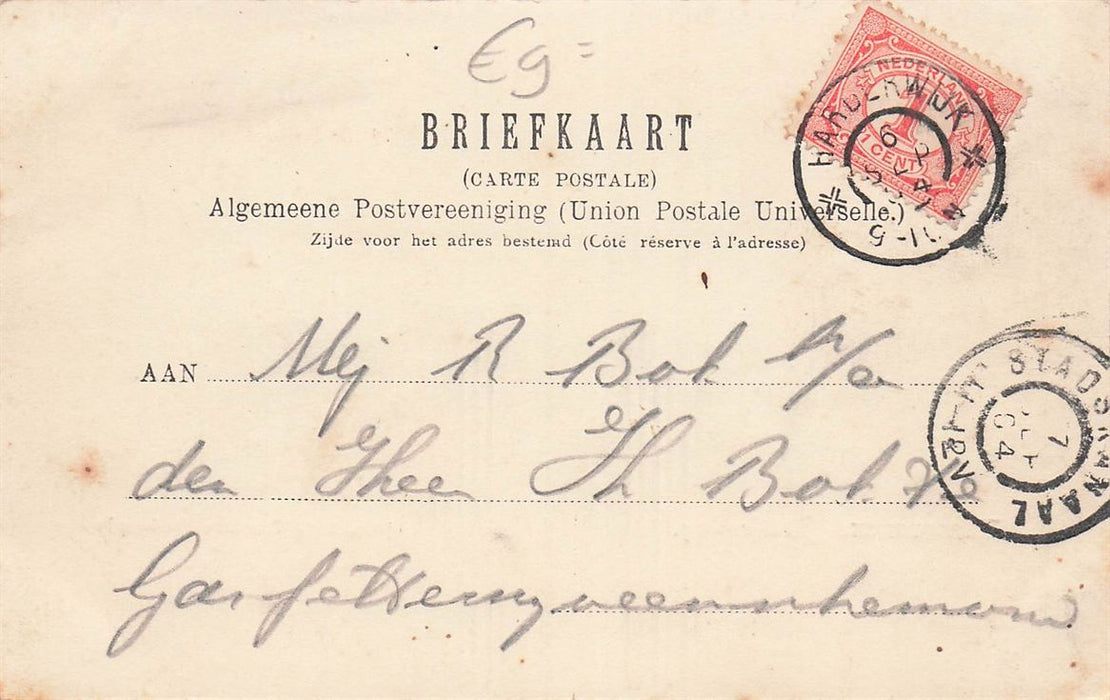 Eg =
NEDERLAND
1
1 CENT
HARDERWIJK
6
BRIEFKAART
(CARTE POSTALE)
Algemeene Postvereeniging (Union Postale Universelle.)
Zijde voor het adres bestemd (Côté réserve à l'adresse)
AAN Mej R Bot
den Heer H Bot
STADSKANAAL
7
04